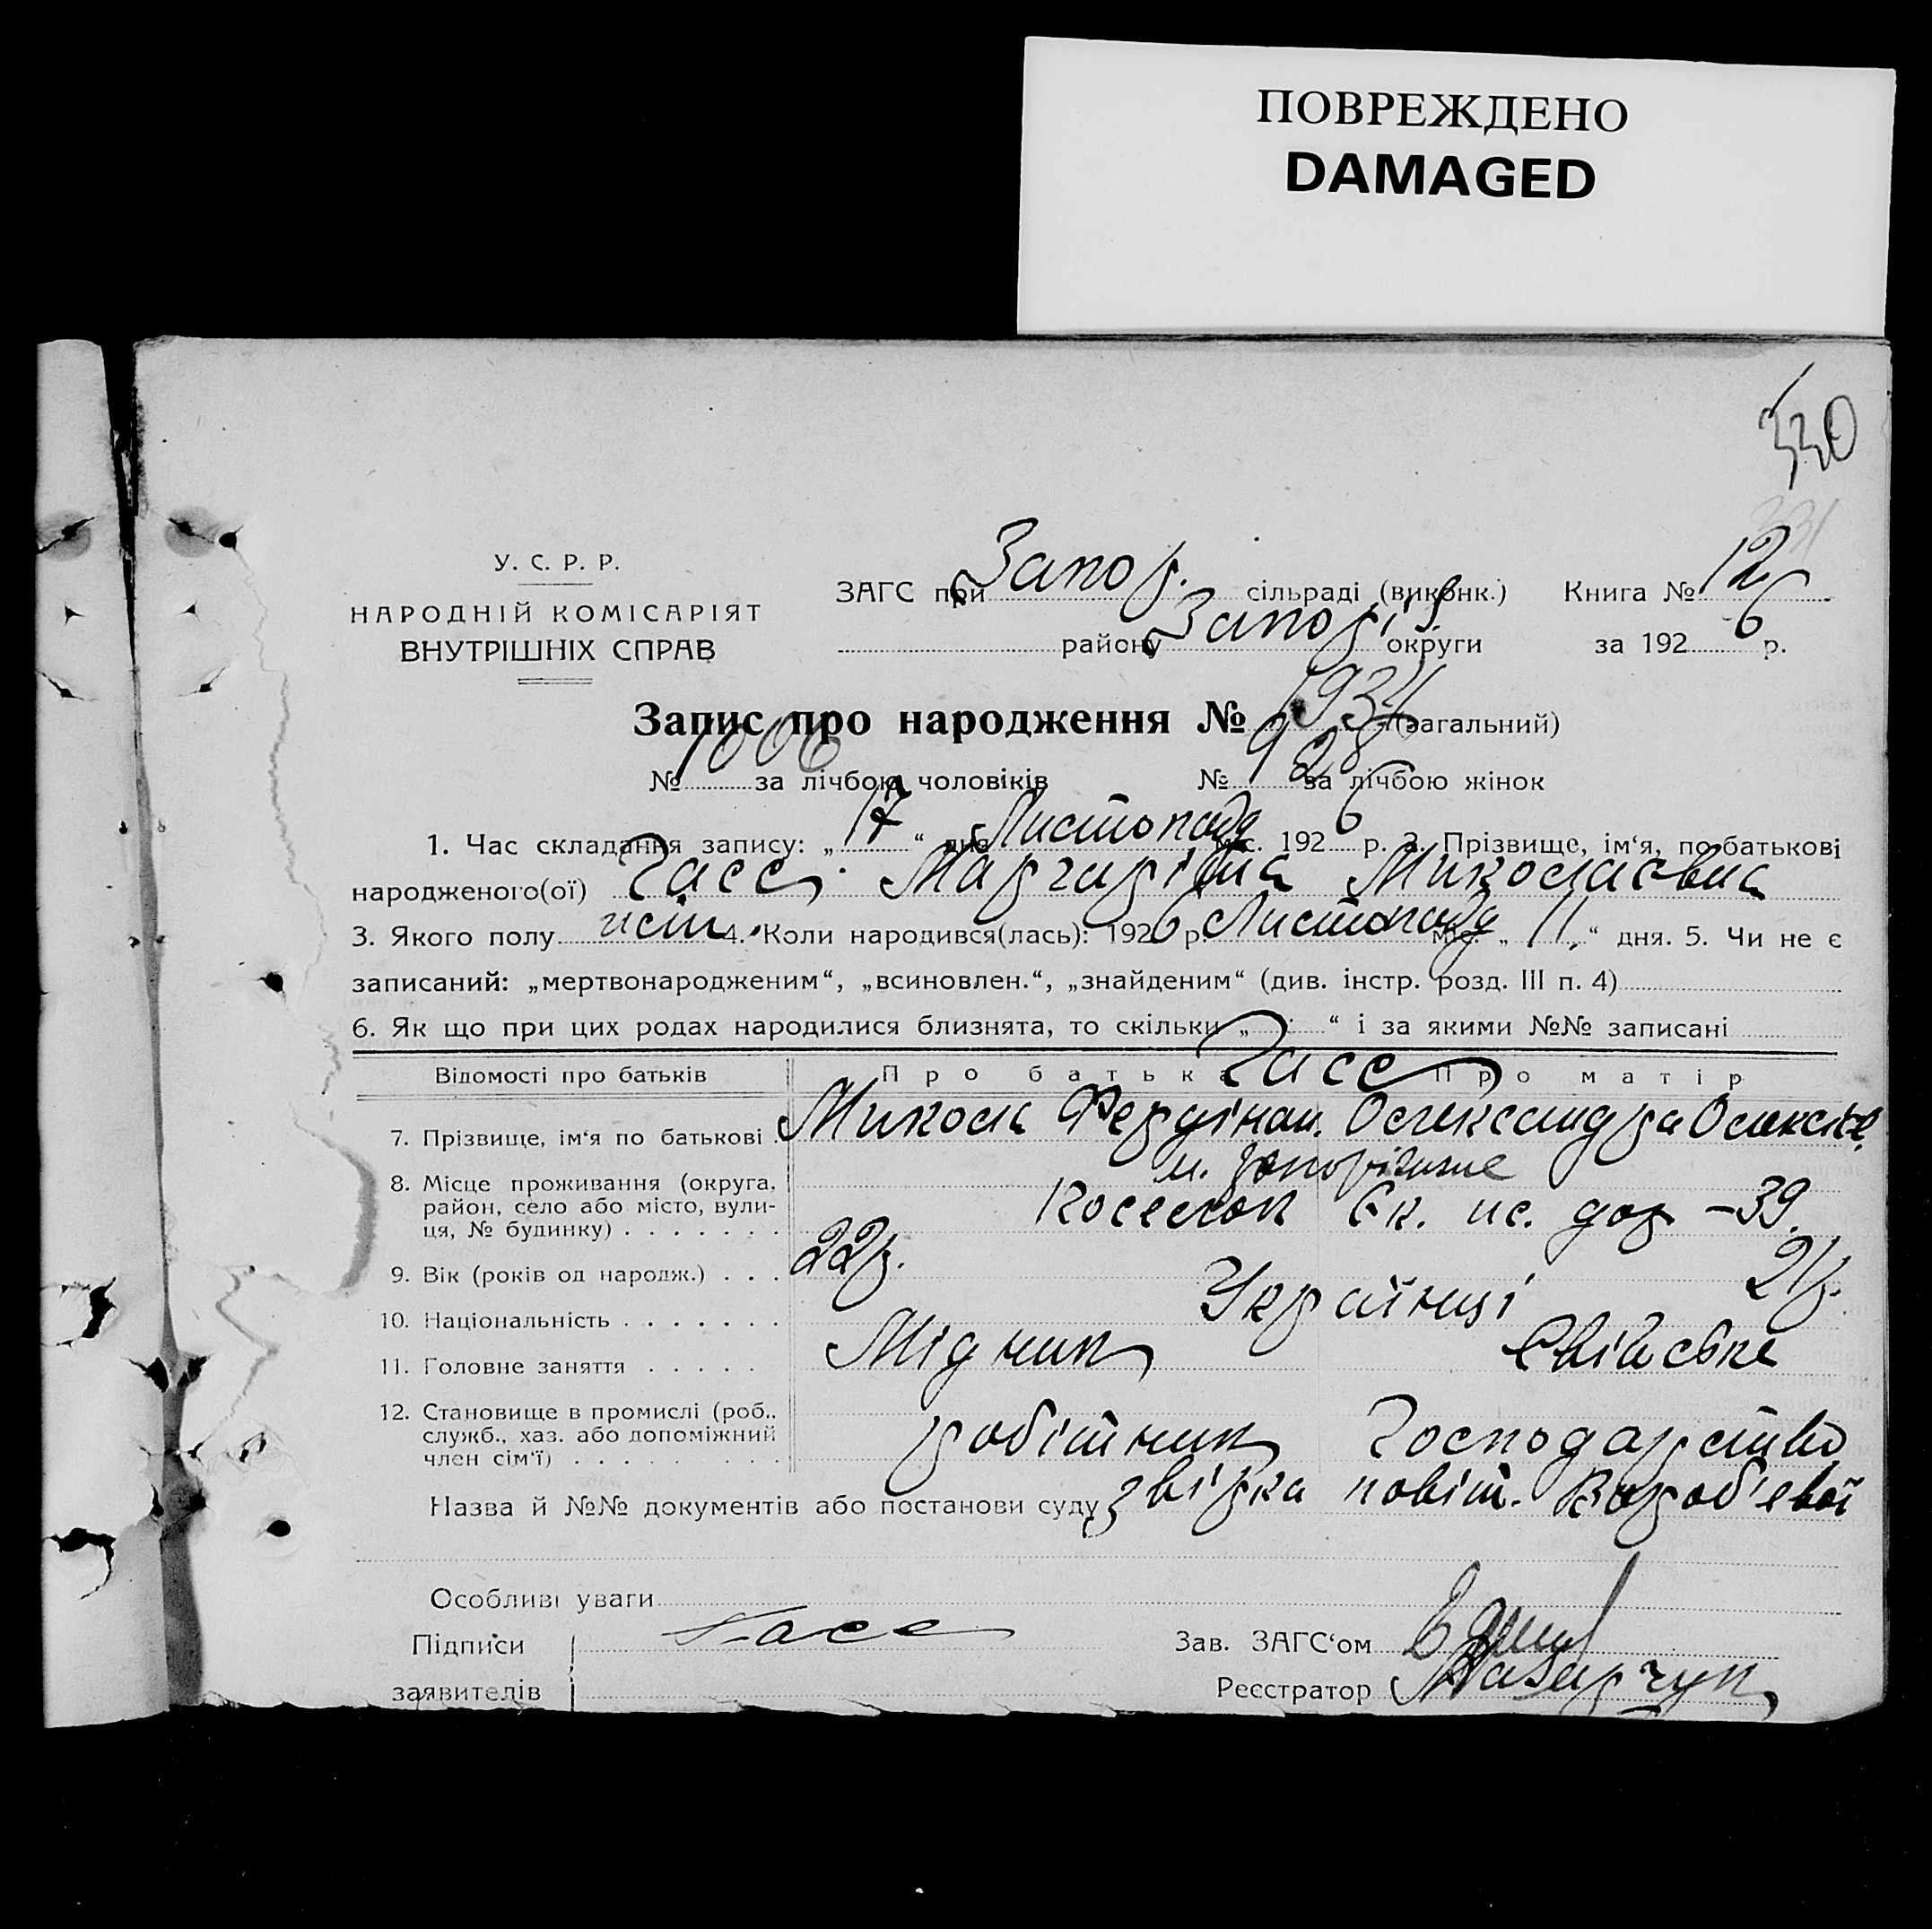 ПОВРЕЖДЕНО
DAMAGED
330
331
У. С. Р. Р.
НАРОДНІЙ КОМІСАРІЯТ
ВНУТРІШНІХ СПРАВ
ЗАГС при Запор. сільраді (виконк.) Книга № 12
району Запоріз. округи за 1926 р.
Запис про народження № 1934 (загальний)
№ 1006 за лічбою чоловіків № 928 за лічбою жінок
1. Час складання запису: „17“ дня Листопада міс. 1926 р. 2. Прізвище, ім‘я, по батькові
народженого(ої) Гасс. Маргаріта Миколаєвна
3. Якого полу жін. 4. Коли народився(лась): 1926 р. Листопада міс. „11.“ дня. 5. Чи не є
записаний: „мертвонародженим“, „всиновлен.“, „знайденим“ (див. інстр. розд. III п. 4)
6. Як що при цих родах народилися близнята, то скільки „ “ і за якими №№ записані
Відомості про батьків Про батька Гасс Про матір
7. Прізвище, ім‘я по батькові . Микола Фердінан. Олександра Олексіє.
8. Місце проживання (округа, м. Запоріжже
район, село або місто, вули- Коссекоп Ек. же. дор – 39.
ця, № будинку) . . . . . . .
9. Вік (років од народж.) . . . 22р. 21р.
10. Національність . . . . . . . Українці
11. Головне заняття . . . . . Мідник Свійське
12. Становище в промислі (роб.,
служб., хаз. або допоміжний робітник Господарство
член сім‘ї) . . . . . . . . .
Назва й №№ документів або постанови суду звірка повіт. Вороб'євої
Особливі уваги
Підписи Гасс Зав. ЗАГС‘ом
заявителів Реєстратор Назарчук